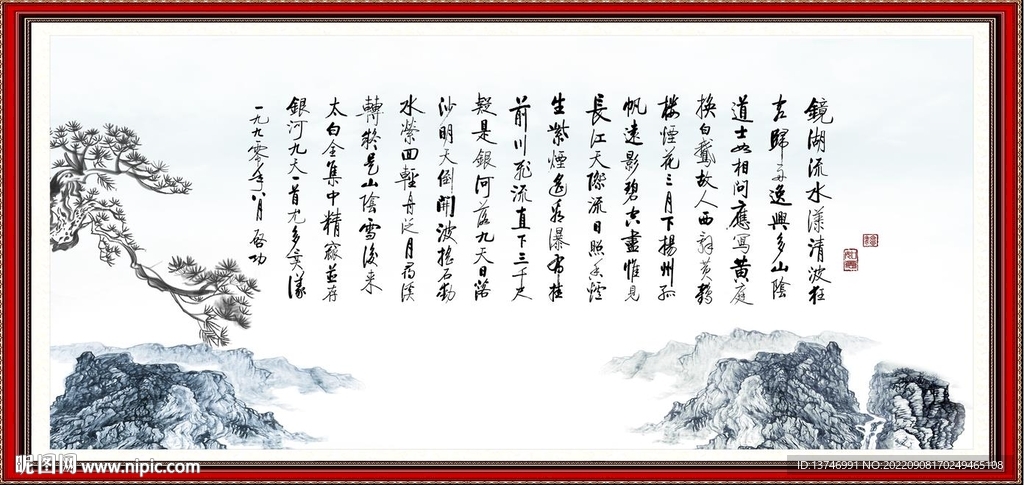 鏡湖流水漾清波狂
客歸舟逸興多山陰
道士如相問應寫黃庭
換白鵞故人西辭黃鶴
樓煙花三月下揚州孤
帆遠影碧空盡惟見
長江天際流日照香爐
生紫煙遙看瀑布挂
前川飛流直下三千尺
疑是銀河落九天日落
沙明天倒開波搖石動
水縈回輕舟泛月尋溪
轉疑是山陰雪後来
太白全集中精並存
銀河九天一首尤多
一九九零年八月 啓功
昵图网 www.nipic.com
ID:13746991 NO:20220908170249465108